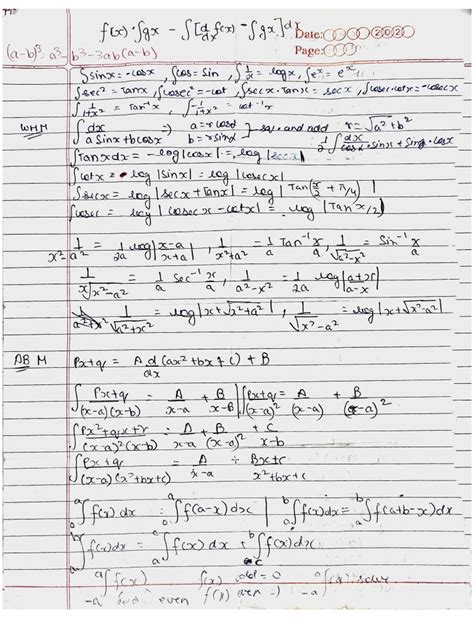 f(x)·∫gx − ∫[d/dx f(x) − ∫gx] dx
Date: 2020
(a-b)³ = a³ - b³ - 3ab(a-b)
Page:
∫sinx = -cosx, ∫cos = sin, ∫1/x = logx, ∫eˣ = eˣ
∫sec² = tanx, ∫cosec² = -cot, ∫secx·tanx = secx, ∫cosec·cotx = -cosecx
∫1/1+x² = Tan⁻¹x, ∫-1/1+x² = cot⁻¹x
WHM ∫dx/a sinx+bcosx ⇒ a=rcosα b=rsinα } sqr and add r=√a²+b²
1/r ∫dx/cosα·sinx + sinα·cosx
∫Tanx dx = -log|cosx| =, log|secx|
∫cotx = log|sinx| = -log|cosecx|
∫secx = log|secx+Tanx| = log|Tan(x/2+π/4)|
∫cosec = log|cosecx-cotx| = log|Tan x/2|
1/x²-a² = 1/2a log|x-a/x+a|, 1/x²+a² = 1/a Tan⁻¹ x/a, 1/√a²-x² = Sin⁻¹ x/a
1/x√x²-a² = 1/a sec⁻¹ x/a, 1/a²-x² = 1/2a log|a+x/a-x|
1/√a²+x² = log|x+√x²+a²|, 1/√x²-a² = log|x+√x²-a²|
AB M Px+q = A d/dx (ax²+bx+c) + B
∫Px+q/(x-a)(x-b) = A/x-a + B/x-b | ∫Px+q/(x-a)² = A/(x-a) + B/(x-a)²
∫Px²+qx+r/(x-a)²(x-b) = A/x-a + B/(x-a)² + C/x-b
∫Px+q/(x-a)(x²+bx+c) = A/x-a + Bx+c/x²+bx+c
₀∫ᵃ f(x) dx = ₀∫ᵃ f(a-x)dx | ₐ∫ᵇ f(x)dx = ₐ∫ᵇ f(a+b-x)dx
ₐ∫ᵇ f(x)dx = ₐ∫ᶜ f(x) dx + c∫ᵇ f(x)dx
₋ₐ∫ᵃ f(x) f(x) odd = 0
odd even f(x) even ⇒ solve